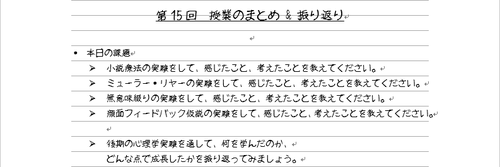 第15回　授業のまとめ & 振り返り
• 本日の課題
➢ 小説療法の実験をして、感じたこと、考えたことを教えてください。
➢ ミューラー・リヤーの実験をして、感じたこと、考えたことを教えてください。
➢ 無意味綴りの実験をして、感じたこと、考えたことを教えてください。
➢ 顔面フィードバック仮説の実験をして、感じたこと、考えたことを教えてください。
➢ 後期の心理学実験を通して、何を学んだのか、
どんな点で成長したかを振り返ってみましょう。